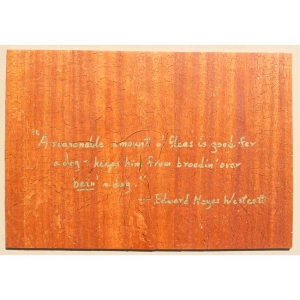 "A reasonable amount o' fleas is good for
a dog - keeps him from broodin' over
bein' a dog."
— Edward Noyes Westcott